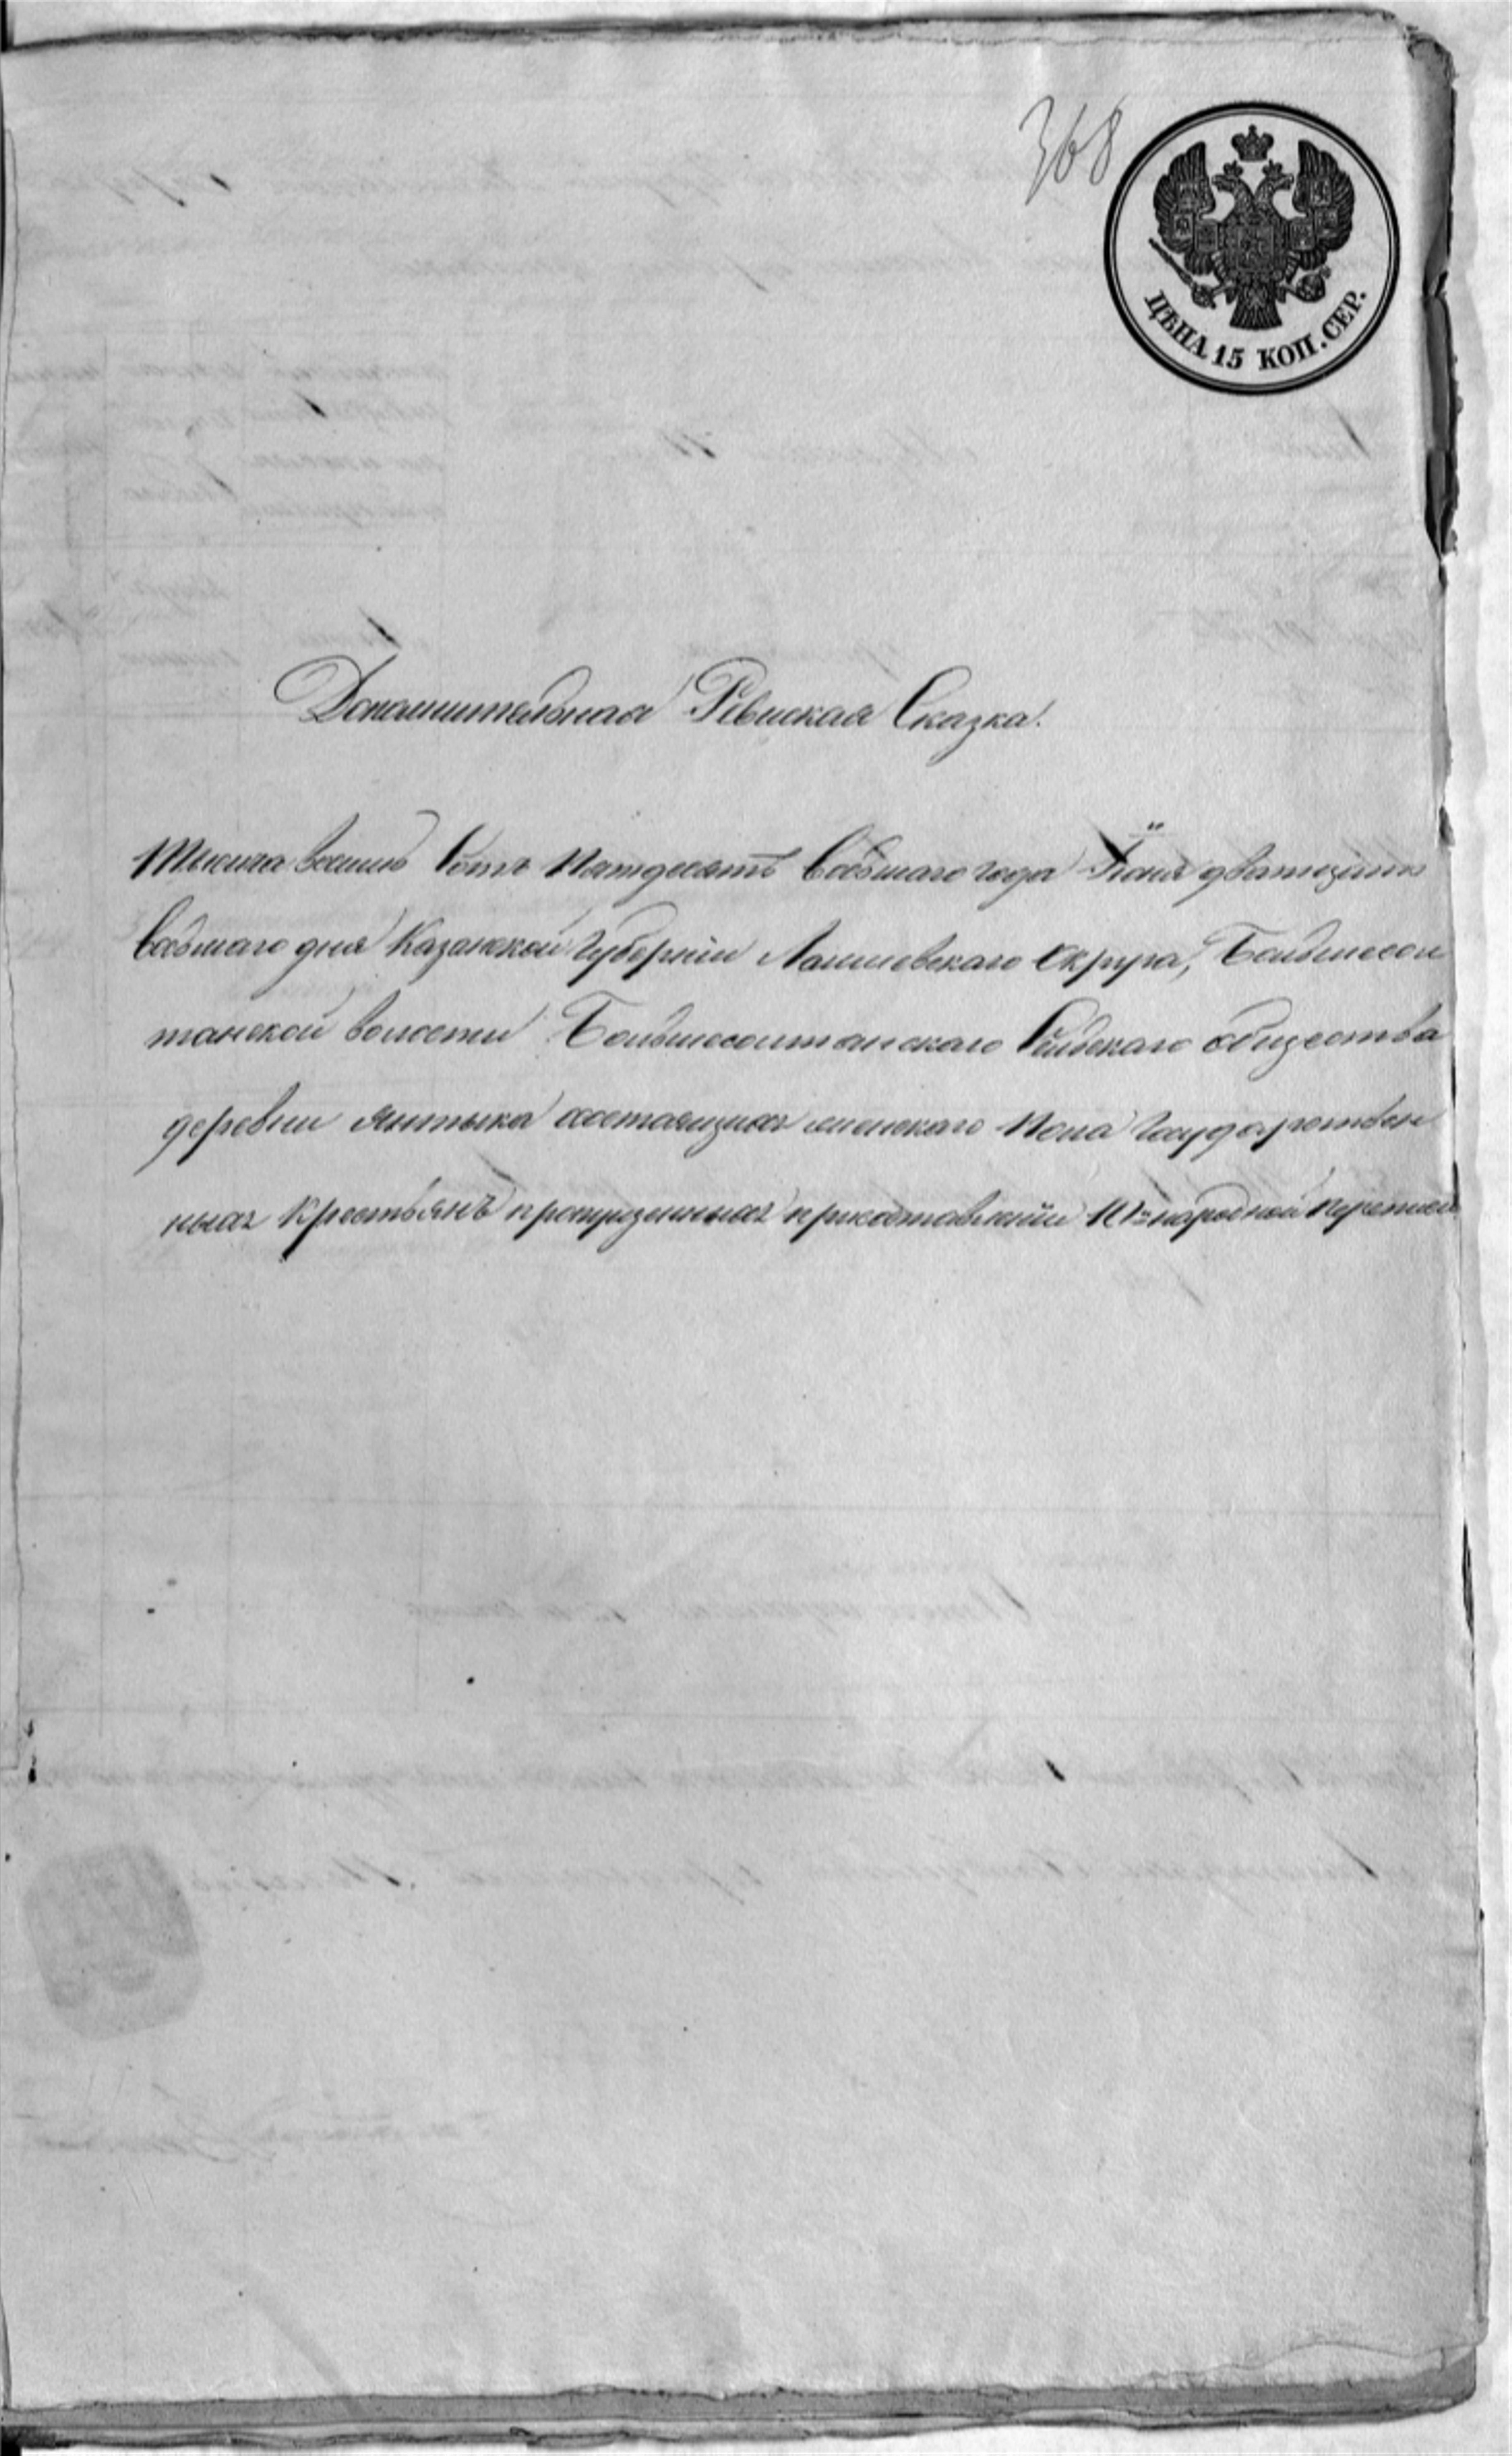 368
ЦѢНА 15 КОП. СЕР.
Дополнительная Ревиская Сказка.
Тысяча восемь Сотъ Пятдесятъ Восьмаго года Іюня дватцать
восьмаго дня Казанской Губерніи Лаишевскаго Округа, Большесол
танской волости Большесолтанскаго Сельскаго общества
деревни Янтыка состоящихъ женскаго Пола Государствен
ныхъ Крестьянъ пропущенныхъ присоставленіи 10й народной Переписи